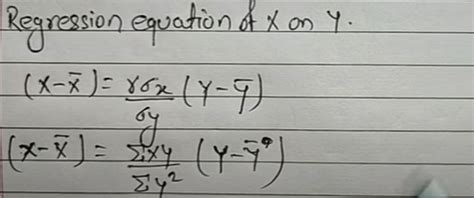 Regression equation of X on Y.
(x-x̄) = rσx/σy (y-ȳ)
(x-x̄) = Σxy/Σy² (y-ȳ)